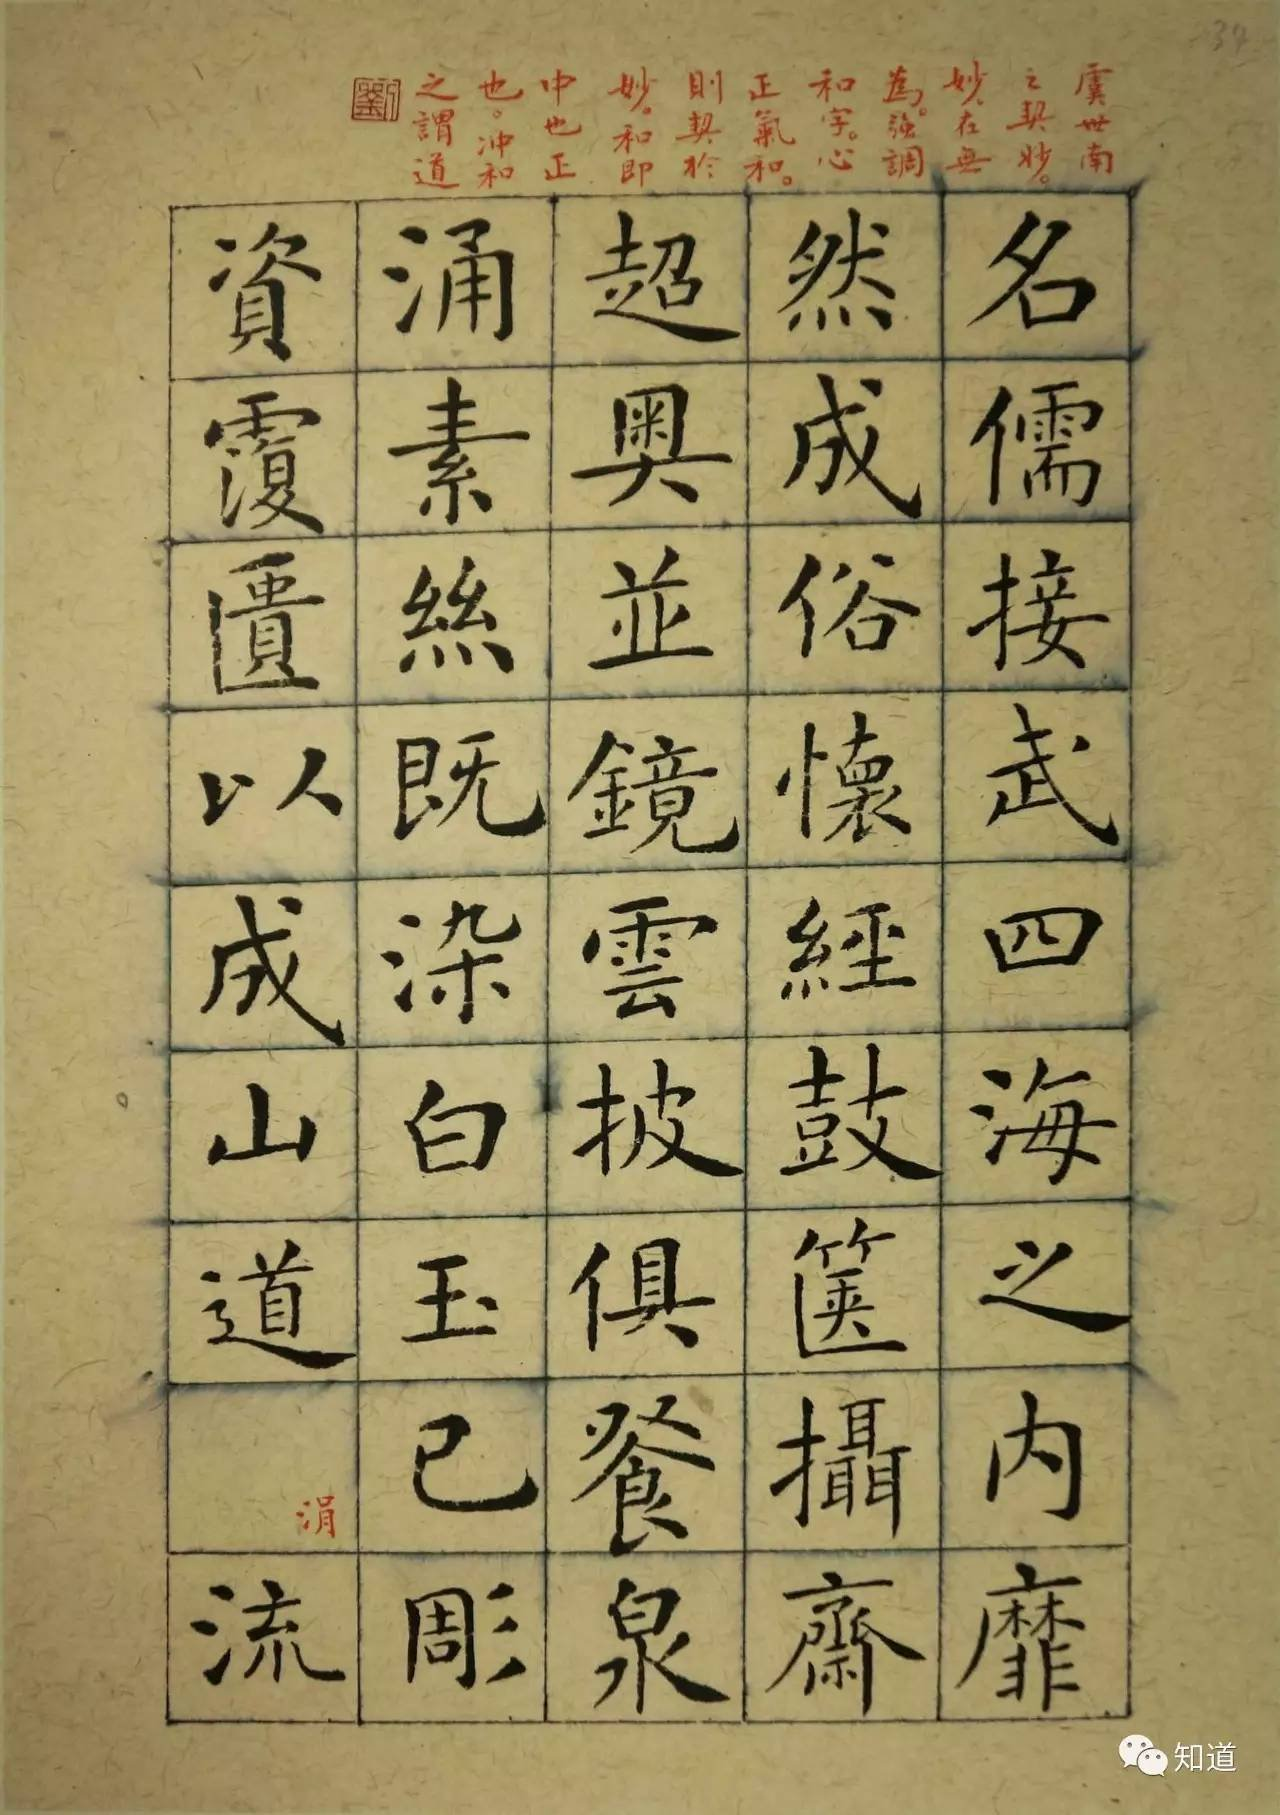 虞世南
之契妙。
妙在無
為。強調
和字。心
正氣和。
則契於
妙。和即
中也正
也。沖和
之謂道
劉
名儒接武四海之內靡
然成俗懷經鼓篋攝齋
超奧並鏡雲披俱餐泉
涌素絲既染白玉已彫
資覆匱以成山道涓流
知道